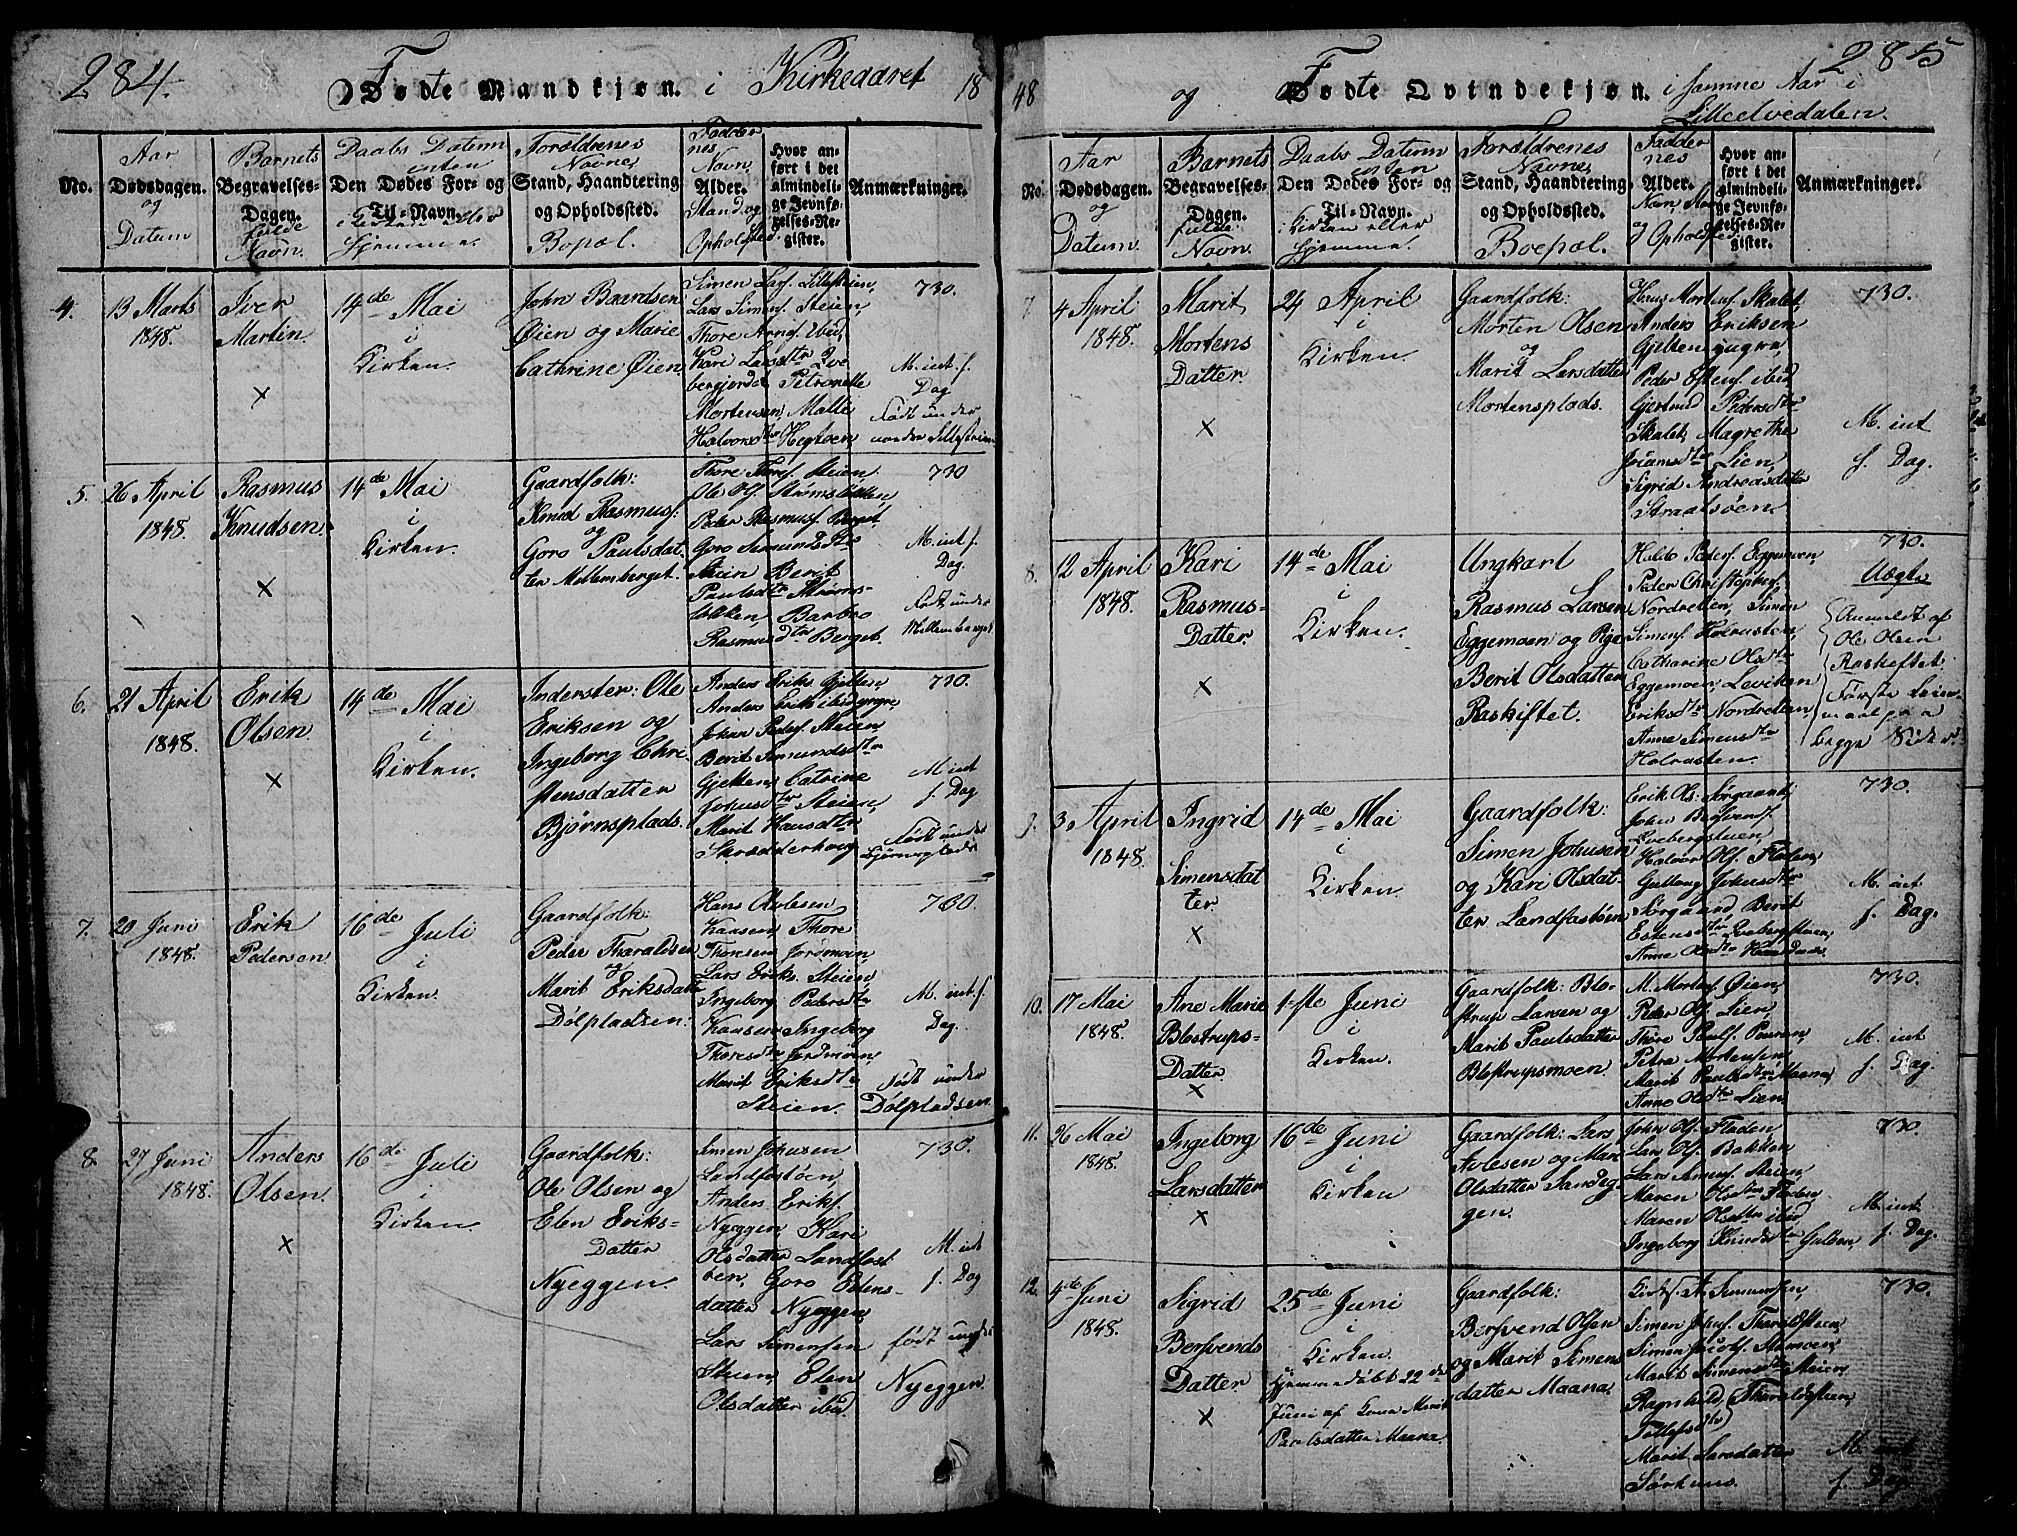 284.
Fødte Mandkjøn. i Kirkeaaret 18
No.
Aar
Dødsdagen.
og
Datum
Barnets
Begravelses-
Dagen.
fulde
Navn.
Daabs Datum
enten
Den Dødes For- og
Til-Navn.
i Kirken eller
hjemme.
Forældrenes
Navne,
Stand, Haandtering
og Opholdssted.
Bopæl.
Faddernes
Navn,
Alder.
Stand og
Opholdsted.
Hvor an-
ført i det
almindeli-
ge Jevnfø-
relses-Re-
gister.
Anmærkninger.
4.
13 Marts
1848.
Iver
Martin
×
14de Mai
i
Kirken.
John Baardsen
Øien og Marie
Cathrine Øien
Simen Larss. Lillesteien,
Lars Simens. Steien,
Thore Arnes. ibid,
Kari Larsdtr
Petronelle
Mortensen, Malli
Halvorsdtr Hegtoen
730.
M. int. f.
Dag
Født under
5.
26 April
1848.
Rasmus
Knudsen
×
14de Mai
i
Kirken.
Gaardfolk:
Knud Rasmuss.
og
Goro Paulsdat-
ter Mellemberget.
Thore Thores. Steien,
Ole Ols. Strømsbakken,
Peder Rasmuss. Berget,
Goro Simensdtr
Steien Berit
Paulsdtr Strøms-
bakken, Barbro
Rasmusdtr Berget.
730
M. int f.
Dag.
Født under
Mellemberget
6.
21 April
1848.
Erik
Olsen
×
14de Mai
i
Kirken.
Inderster: Ole
Eriksen og
Ingeborg Chri-
stensdatter
Bjørnsplads.
Anders Erik Gjelten,
Anders Erik ibid yngre,
Johan Peders. Steien
Berit Simensdtr
Gjelten, Catrine
Johnsdtr Steien,
Marit Hansdtr
Skrædderhaug
730.
M int
f. Dag
Født under
Bjørnsplads
7.
20 Juni
1848.
Erik
Pedersen
16de Juli
i
Kirken.
Gaardfolk:
Peder Tharaldsen
og
Marit Eriksdatter
Dølpladsen.
Hans Avlesen
Kaasen Thore
Thoresen Jordmoen
Lars Eriks. Steien,
Ingeborg Pedersdtr
Kaasen Ingeborg
Thoresdtr Jordmoen,
Marit Eriksdtr
Steien.
730.
M. int. f.
Dag.
Født under
Dølpladsen
8.
27 Juni
1848.
Anders
Olsen.
×
16de Juli
i
Kirken.
Gaardfolk:
Ole Olsen og
Elen Eriks-
Datter
Nyeggen.
Simen Johnsen
Landfastøen,
Anders Eriks.
Nyeggen, Kari
Olsdatter Landfast
øen, Goro Estens-
datter Nyeggen,
Lars Simensen
Steien, Elen
Olsdatter ibid.
730.
M. int
f. Dag
født under
Nyeggen.
285
48 og Fødte Qvindekjøn. i samme Aar i
Lilleelvedalen.
No
Aar
Dødsdagen.
og
Datum.
Barnets
Begravelses-
Dagen.
fulde
Navn.
Daabs Datum
enten
Den Dødes For- og
Til-Navn.
i Kirken eller
hjemme.
Forældrenes
Navne,
Stand, Haandtering
og Opholdssted.
Boepæl.
Faddernes
Alder.
Navn, Stand
og Opholdsted.
Hvor an-
ført i det
almindeli-
ge Jevnfø-
relses-Re-
gister.
Anmærkninger.
7
4 April
1848.
Marit
Mortens
Datter.
×
24 April
i
Kirken.
Gaardfolk:
Morten Olsen
og
Marit Larsdatter
Mortensplads.
Hans Mortens. Skalet,
Anders Eriksen
Gjelten yngre,
Peder Estens. ibid
Gjertrud Pedersdtr
Skalet, Magrethe
Lien,
Sigrid Andreasdatter
Straalsøen.
730.
M. int
f. Dag.
8.
12 April
1848.
Kari
Rasmus-
Datter
×
14de Mai
i
Kirken.
Ungkarl
Rasmus Larsen
Eggemoen og Pige
Berit Olsdatter
Raskiftet.
Halvo Peders. Eggemoen,
Peder Christophers.
Nordretten, Simen
Simens. Holrusten,
Catharine Olsdtr
Eggemoen, Leviken
Eriksdtr Nordretten,
Anne Simensdtr
Holrusten.
730.
Uægte
Anmeldt af
Ole Olsen
Raskiftet.
Første Leier-
maal paa
begge Sider
9.
3 April
1848.
Ingrid
Simensdat
ter.
×
14de Mai
i
Kirken.
Gaardfolk:
Simen Johnsen
og Kari Olsdat-
ter Landfastøen
Erik Ols. Sørgaard,
John Bersvens.
Qvebergstuen,
Halvor Ols. Fladen,
Gulloug Johnsdtr
Sørgaard Berit
Estensdtr Qvebergstuen,
Anne Olsdtr
730.
M. int
f. Dag.
10.
17 Mai
1848.
Ane Marie
Blostrups-
Datter.
×
1ste Juni
i
Kirken.
Gaardfolk: Blo-
strup Larsen og
Marit Paulsdatter
Blostrupsmoen.
M. Mortens. Øien,
Peder Ols. Lien,
Thore Pauls.
Petra Mortensen,
Marit Paulsdtr Maana,
Anne Olsdtr Lien.
730.
M. int
f. Dag.
11.
26 Mai
1848.
Ingeborg
Larsdatter
×
16de Juni
i
Kirken
Gaardfolk: Lars
Avlesen og Mari
Olsdatter Sandeg-
gen.
John Ols. Fladen
Lars Ols. Bakken
Lars Simens. Steien,
Maren Olsdtr Fladen,
Maren Olsdtr ibid,
Ingeborg Knudsdtr
730.
M. int
f. Dag.
12.
4de Juni
1848.
Sigrid
Bersvends
Datter
×
25de Juni
i
Kirken.
Hjemmedøbt 22de
Juni af Kone Marit
Paulsdatter Maana.
Gaardfolk:
Bersvend Olsen
og Marit Simens
datter Maana
Kirks. A. Simensen
Simen Johns. Tharaldsteien,
Simen Jacobs.
Marit Simensdtr Steien,
Ragnhild Tharaldsteien,
Tollefsdtr
Marit Larsdatter
730.
M. int
f. Dag